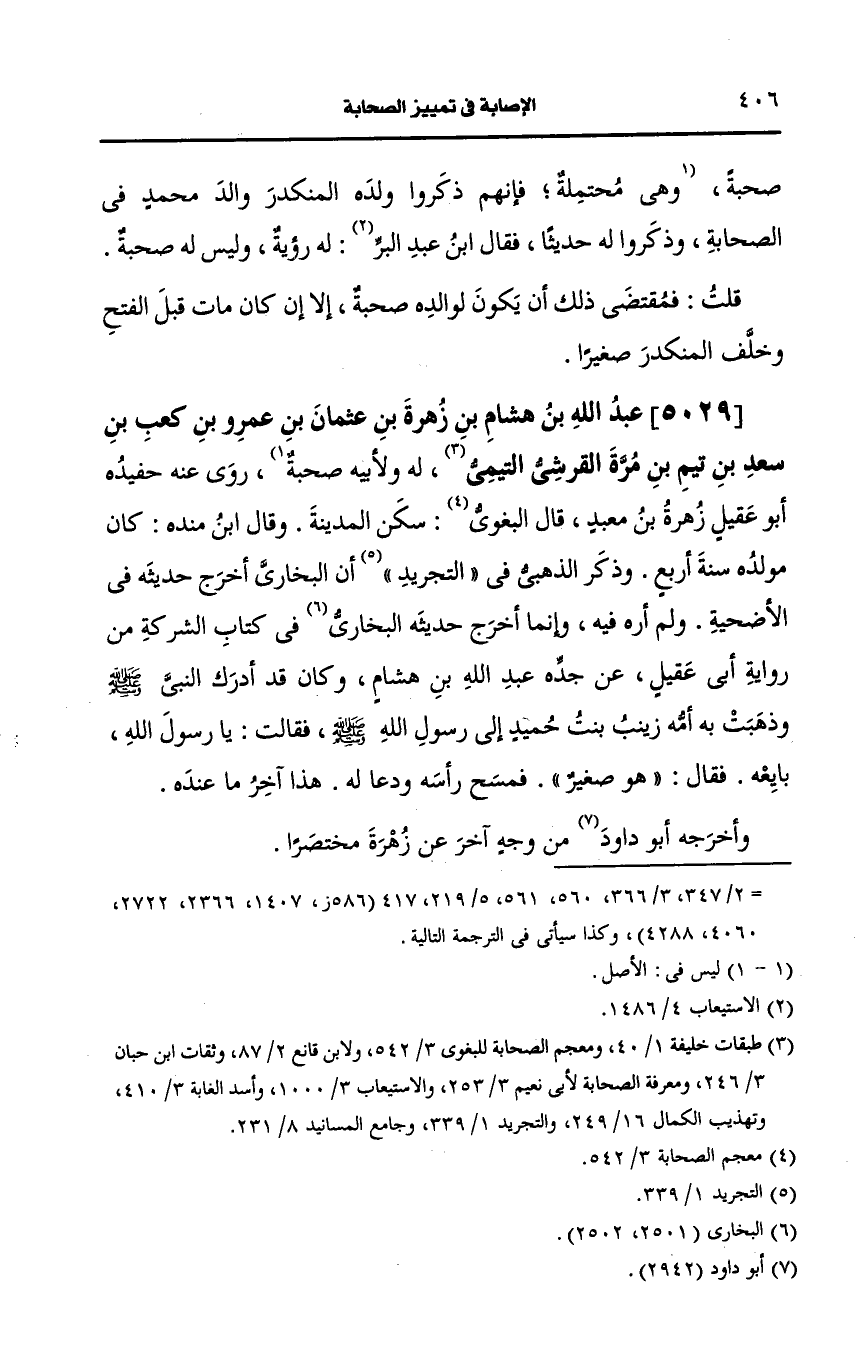 ٤٠٦
الإصابة فى تمييز الصحابة
صحبةً ، (١وهى مُحتمِلةٌ ؛ فإنهم ذكَروا ولدَه المنكدرَ والدَ محمدٍ فى
الصحابةِ ، وذكَروا له حديثًا ، فقال ابنُ عبدِ البرِّ(٢) : له رؤيةٌ ، وليس له صحبةٌ .
قلتُ : فمُقتضَى ذلك أن يَكونَ لوالدِه صحبةٌ ، إلا إن كان مات قبلَ الفتحِ
وخلَّف المنكدرَ صغيرًا .
[٥٠٢٩] عبدُ اللهِ بنُ هشامِ بنِ زُهرةَ بنِ عثمانَ بنِ عمرِو بنِ كعبِ بنِ
سعدِ بنِ تيمِ بنِ مُرَّةَ القرشىُّ التيمِىُّ(٣) ، له ولأبيه صحبةٌ١) ، روَى عنه حفيدُه
أبو عَقيلٍ زُهرةُ بنُ معبدٍ ، قال البغوىُّ(٤) : سكَن المدينةَ . وقال ابنُ منده : كان
مولدُه سنةَ أربعٍ . وذكَر الذهبىُّ فى « التجريدِ »(٥) أن البخارىَّ أخرَج حديثَه فى
الأضحيةِ . ولم أره فيه ، وإنما أخرَج حديثَه البخارىُّ(٦) فى كتابِ الشركةِ من
روايةِ أبى عَقيلٍ ، عن جدِّه عبدِ اللهِ بنِ هشامٍ ، وكان قد أدرَك النبىَّ ﷺ
وذهَبَتْ به أمُّه زينبُ بنتُ حُميدٍ إلى رسولِ اللهِ ﷺ ، فقالت : يا رسولَ اللهِ ،
بايِعْه . فقال : « هو صغيرٌ » . فمسَح رأسَه ودعا له . هذا آخِرُ ما عندَه .
وأخرَجه أبو داودَ(٧) من وجهٍ آخرَ عن زُهْرَةَ مختصَرًا .
= ٣٤٧/٢، ٣٦٦/٣، ٥٦٠، ٥٦١، ٢١٩/٥، ٤١٧ (٥٨٦ز، ١٤٠٧، ٢٣٦٦، ٢٧٢٢،
٤٠٦٠، ٤٢٨٨) ، وكذا سيأتى فى الترجمة التالية .
(١ - ١) ليس فى : الأصل .
(٢) الاستيعاب ٤/ ١٤٨٦.
(٣) طبقات خليفة ١/ ٤٠، ومعجم الصحابة للبغوى ٣/ ٥٤٢، ولابن قانع ٢/ ٨٧، وثقات ابن حبان
٣/ ٢٤٦، ومعرفة الصحابة لأبى نعيم ٣/ ٢٥٣، والاستيعاب ٣/ ١٠٠٠، وأسد الغابة ٣/ ٤١٠،
وتهذيب الكمال ١٦/ ٢٤٩، والتجريد ١/ ٣٣٩، وجامع المسانيد ٨/ ٢٣١.
(٤) معجم الصحابة ٣/ ٥٤٢.
(٥) التجريد ١/ ٣٣٩.
(٦) البخارى (٢٥٠١، ٢٥٠٢) .
(٧) أبو داود (٢٩٤٢) .